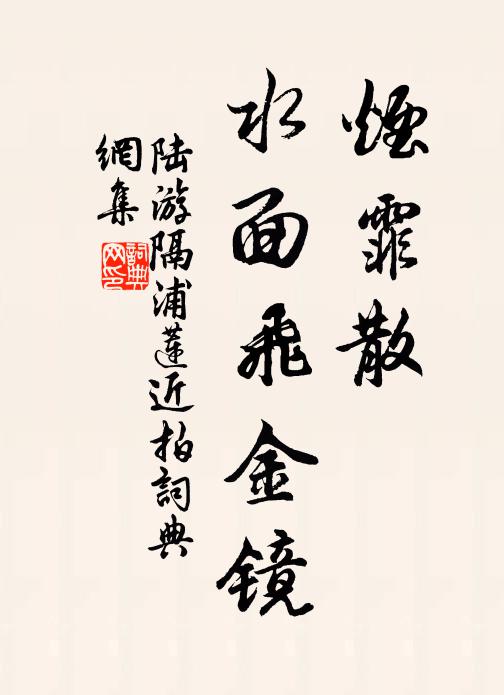 煙霏散
水面飛金鏡
陆游隔浦蓮近拍詞典
網集
詞典網印